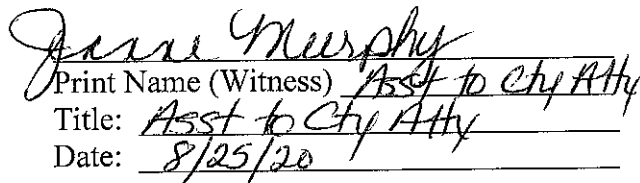 Jane Murphy
Print Name (Witness) Asst to Cty Atty
Title: Asst to Cty Atty
Date: 8/25/20